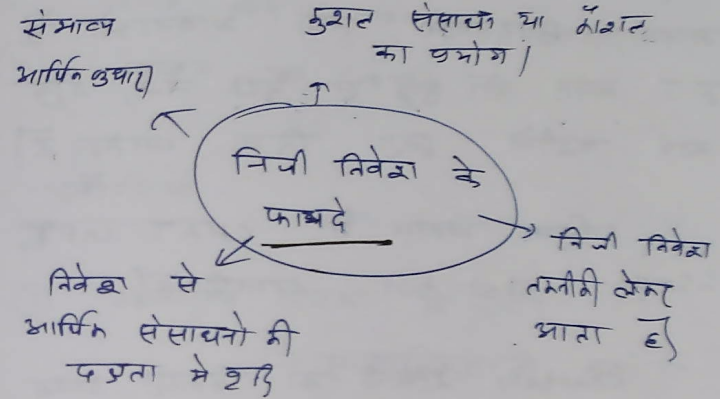 संभाव्य
आर्थिक सुधार।
कुशल संसाधन या कौशल
का प्रयोग।
निजी निवेश के
फायदे
निजी निवेश
तकनीकी लेकर
आता है।
निवेश से
आर्थिक संसाधनो की
दक्षता मे वृद्धि